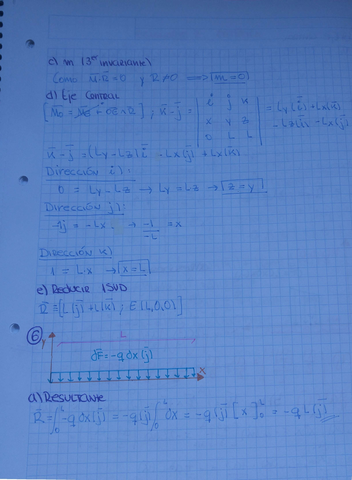 c) m (3er invariante)
Como M·R = 0 y R ≠ 0 ⟹ m = 0
d) Eje Central
i j k
x y z
0 L L
= Ly(i) + Lx(k)
- Lz(i) - Lx(j)
= (Ly - Lz)i - Lx(j) + Lx(k)
Dirección i):
0 = Ly - Lz → Ly = Lz → z = y
Dirección j):
-1j = -Lx → -1/-L = x
Dirección k)
1 = L·x → x = L
e) Reducir ISUD
R = [L(j) + L(k) ; E(L,0,0)]
6 y L
dF = -q dx(j)
x
a) RESULTANTE
R = ∫₀ᴸ -q dx(j) = -q(j) ∫₀ᴸ dx = -q(j) [x]₀ᴸ = -q L(j)